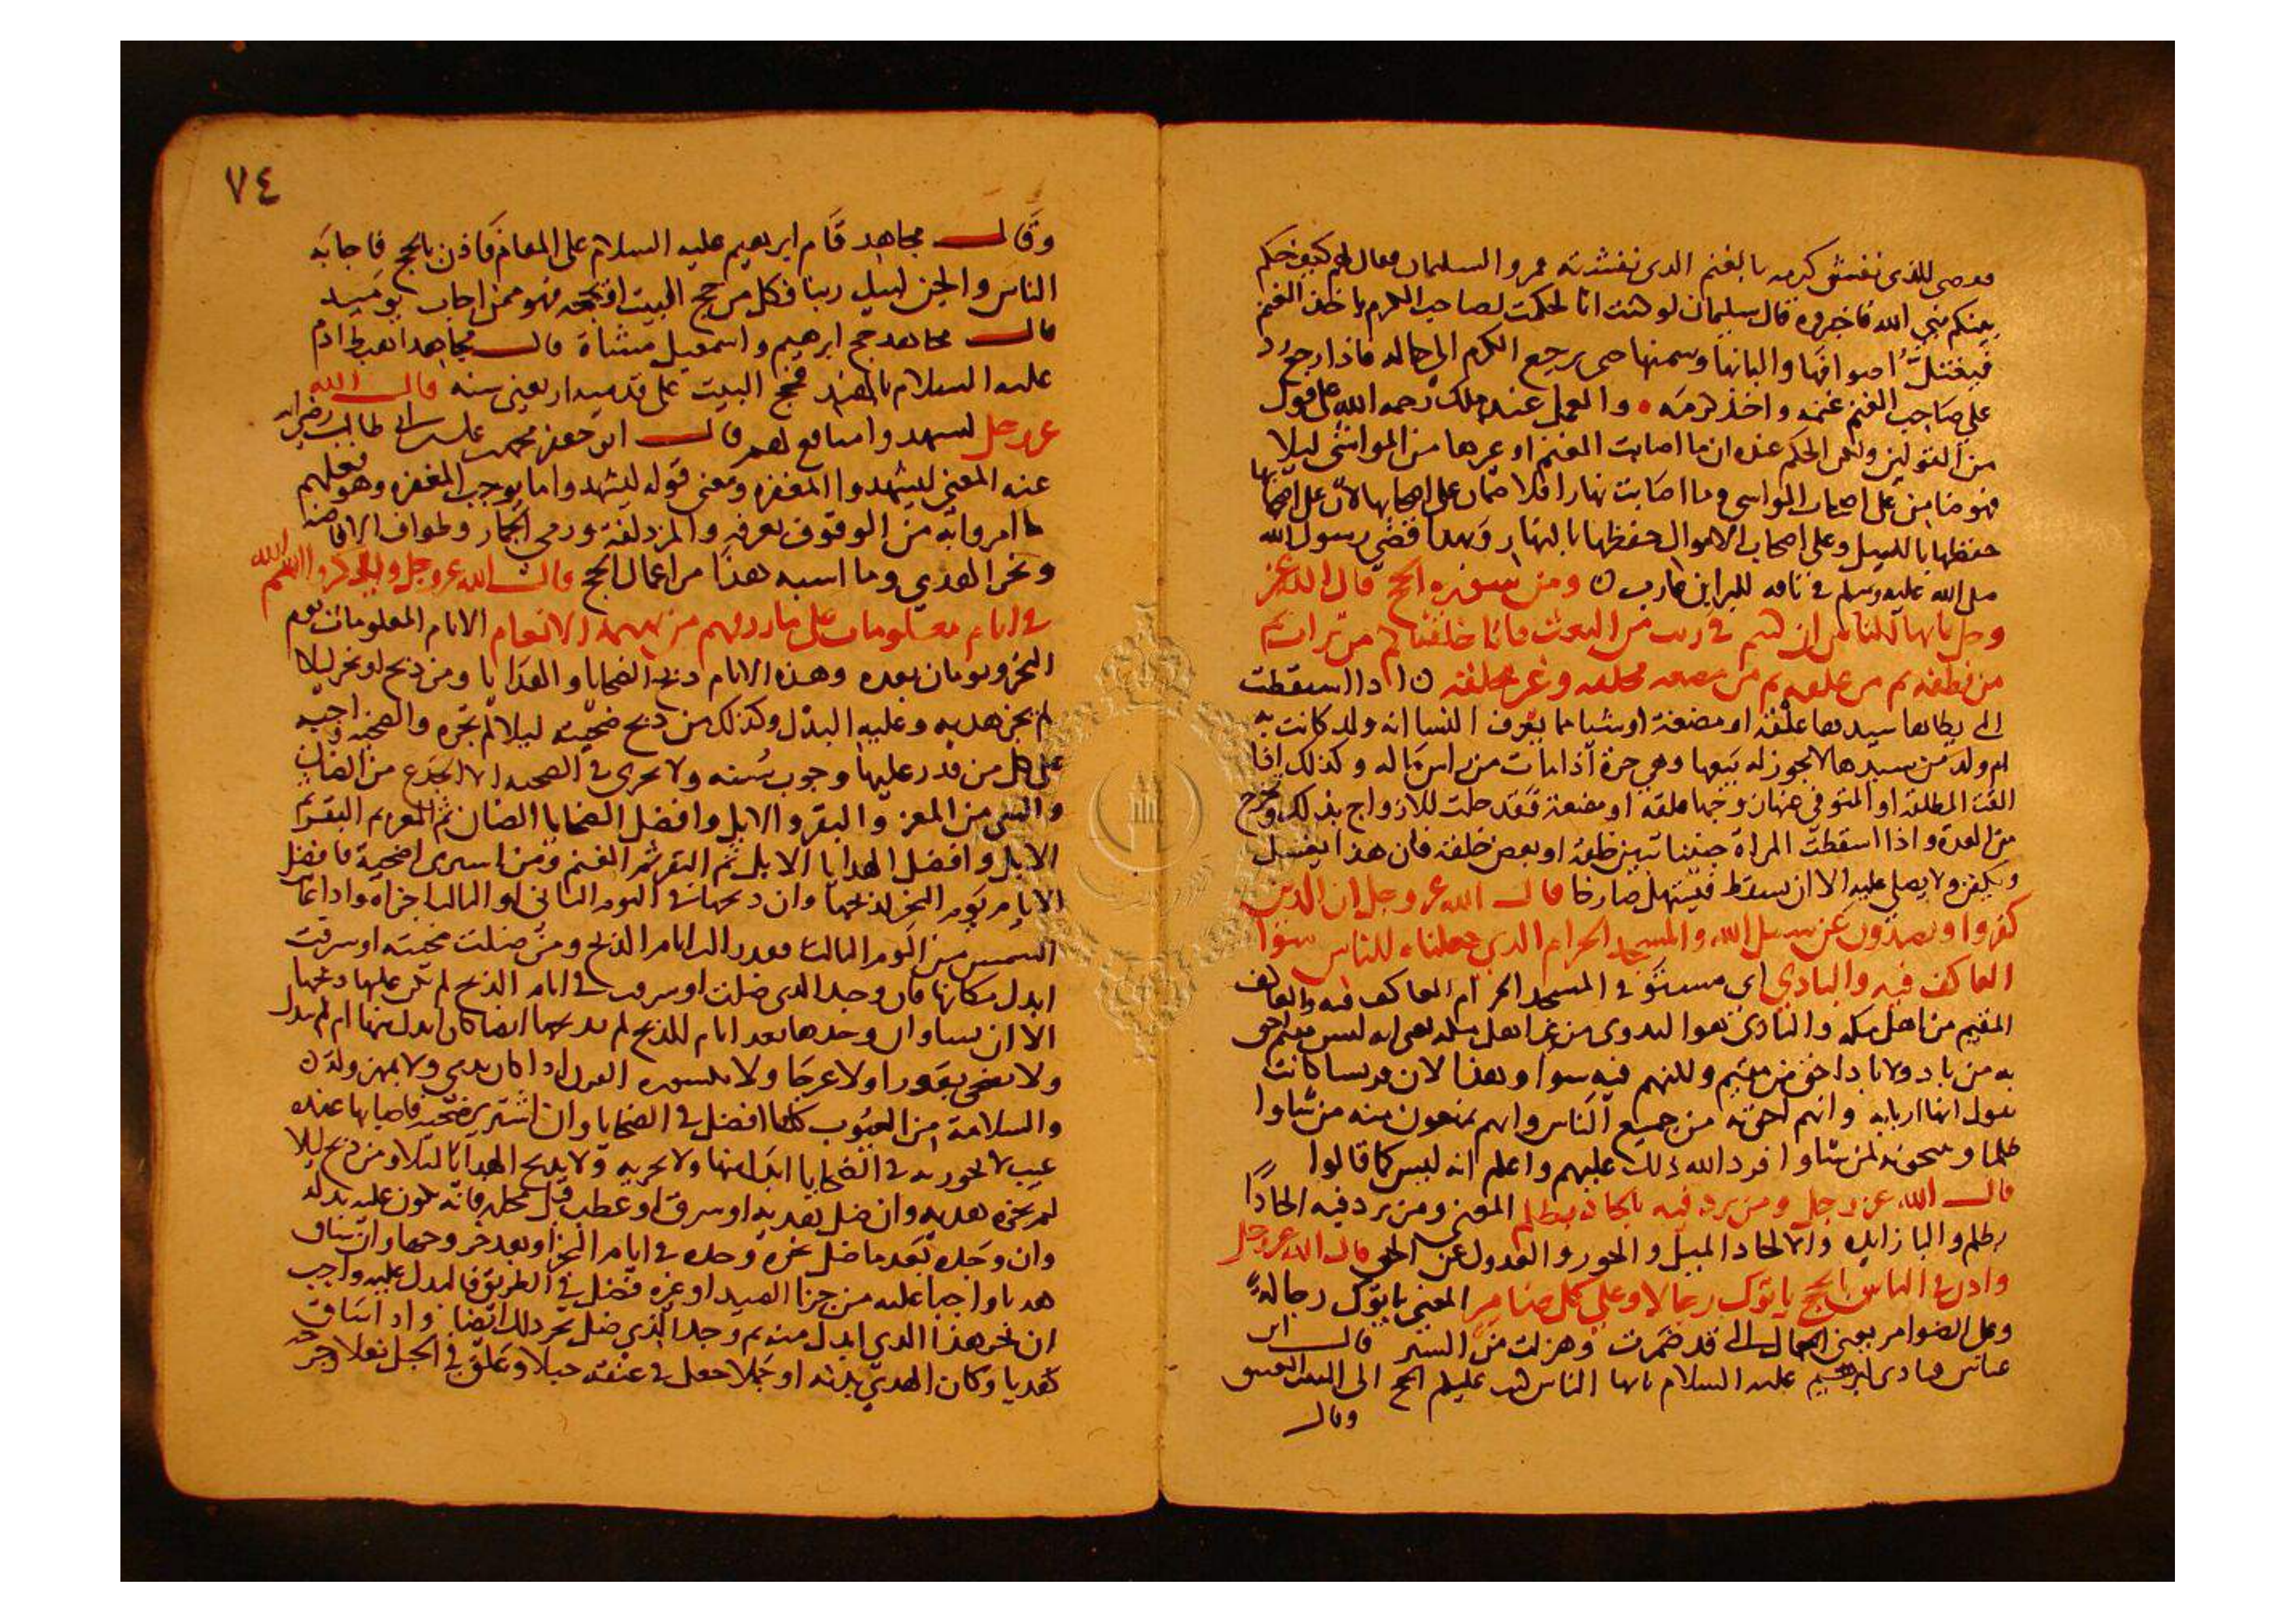 للذي نفشت كرمه بالغنم الذي نفشته فمروا بسليمان فقال لهم كيف حكم
بينكم نبي الله فاخبروه قال سليمان لو شئت انا لحكمت لصاحب الكرم ياخذ الغنم
اصوافها والبانها وسمنها حتى يرجع الكرم الى حاله فاذا رجع رد
على صاحب الغنم غنمه واخذ كرمه والعمل عند ملك رحمه الله على قول
من القولين ولكن الحكم عنده ان ما اصابت الغنم او غيرها من المواشي ليلا
فهو ضامن على اصحاب المواشي وما اصابت نهارا فلا ضمان على اصحابها لان على اصحابها
حفظها بالليل وعلى اصحاب الاموال حفظها بالنهار وبهذا قضى رسول الله
صلى الله عليه وسلم في ناقه للبرا ابن عازب ومن سوره الحج قال الله عز
وجل يايها الناس ان كنتم في ريب من البعث فانا خلقناكم من تراب ثم
من نطفه ثم من علقه ثم من مضغه مخلقه وغير مخلقه اذا اسقطت
التي يطاها سيدها علقة او مضغة او شيا مما يعرف النسا انه ولد كانت به
ام ولد من سيدها لا يجوز له بيعها وهي حرة اذا مات من راس ماله وكذلك اذا
القت المطلقة او المتوفى عنها زوجها علقة او مضغة فقد حلت للازواج بذلك وتخرج
من العدة واذا اسقطت المراة جنينا تبين خلقه او بعض خلقه فان هذا يغسل
ويكفن ولا يصلى عليه الا ان يسقط فيستهل صارخا قال الله عز وجل ان الذين
كفروا ويصدون عن سبيل الله والمسجد الحرام الذي جعلناه للناس سوا
العاكف فيه والبادي اي مستو في المسجد الحرام العاكف فيه والعاكف
المقيم من اهل مكه والبادي هو البدوي من غير اهل مكه يعني انه ليس مقيم احق
به من باد ولا باد احق من مقيم وكلهم فيه سوا وهذا لان قريشا كانت
تقول انها اربابه وانهم احق به من جميع الناس وانهم يمنعون منه من شاوا
ظلما ويبيحونه لمن شاوا فرد الله ذلك عليهم واعلم انه ليس كما قالوا
قال الله عز وجل ومن يرد فيه بالحاد بظلم المعنى ومن يرد فيه الحادا
بظلم والبا زايده والالحاد الميل والجور والعدول عن الحق قال الله عز وجل
واذن في الناس بالحج ياتوك رجالا وعلى كل ضامر المعنى ياتوك رجالة
وعلى الضوامر يعني الجمال التي قد ضمرت وهزلت من السير قال ابن
عباس نادى ابرهيم عليه السلام يايها الناس كتب عليكم الحج الى البيت العتيق
وقال
٧٤
وقال مجاهد قام ابرهيم عليه السلام على المقام فاذن بالحج فاجابه
الناس والجن لبيك ربنا فكل من حج البيت فهو ممن اجاب يوميد
قال مجاهد حج ابرهيم واسمعيل مشاة قال مجاهد اهبط ادم
عليه السلام بالهند فحج البيت على قدميه اربعين سنه قال الله
عز وجل ليشهدوا منافع لهم قال ابو جعفر محمد علي بن ابي طالب رضي الله
عنه المعنى ليشهدوا المغفره ومعنى قوله ليشهدوا ما يوجب المغفره وهو فعلهم
ما امروا به من الوقوف بعرفه والمزدلفة ورمي الجمار وطواف الافاضه
ونحر الهدي وما اشبه هذا من اعمال الحج قال الله عز وجل ويذكروا اسم الله
في ايام معلومات على ما رزقهم من بهيمة الانعام الايام المعلومات يوم
النحر ويومان بعده وهذه الايام ذبح الضحايا والهدايا ومن ذبح او نحر ليلا
لم يجز هديه وعليه البدل وكذلك من ذبح ضحيته ليلا لم تجزه والضحيه واجبه
على كل من قدر عليها وجوب سنه ولا يجزي في الضحيه الا الجذع من الضان
والثني من المعز والبقر والابل وافضل الضحايا الضان ثم المعز ثم البقر ثم
الابل وافضل الهدايا الابل ثم البقر ثم الغنم ومن اشترى اضحية فافضل
الايام يوم النحر لذبحها وان ذبحها في اليوم الثاني او الثالث اجزاه واذا غابت
الشمس من اليوم الثالث فقد زالت ايام الذبح ومن ضلت ضحيته او سرقت
ابدل مكانها فان وجد الذي ضلت او سرقت في ايام الذبح لم يكن عليها ذبحها
الا ان يشا وان وجدها بعد ايام الذبح لم يذبحها ايضا كان ابدل منها ام لم يبدل
ولا يضحى بعورا ولا عرجا ولا مكسوره القرن اذا كان يدمي ولا بمهزوله
والسلامة من العيوب كلها افضل في الضحايا وان اشترى ضحيه فاصابها عنده
عيب لا يجوز به في الضحايا ابدل منها ولا تجزيه ولا يذبح الهدايا ليلا ومن ذبح ليلا
لم يجزه هديه وان ضل هديه او سرق او عطب قبل محله فانه يكون عليه بدله
وان وجده بعد ما ضل نحره وحده في ايام النحر او بعد خروجها وان ساق
هديا واجبا عليه من جزا الصيد او غيره فضل في الطريق فالبدل عليه واجب
ان نحر هذا الذي ابدل منه ثم وجد الذي ضل نحر ذلك ايضا واذا ساق
هديا وكان الهدي بدنه او جملا جعل في عنقه حبلا وعلق في الحبل نعلا